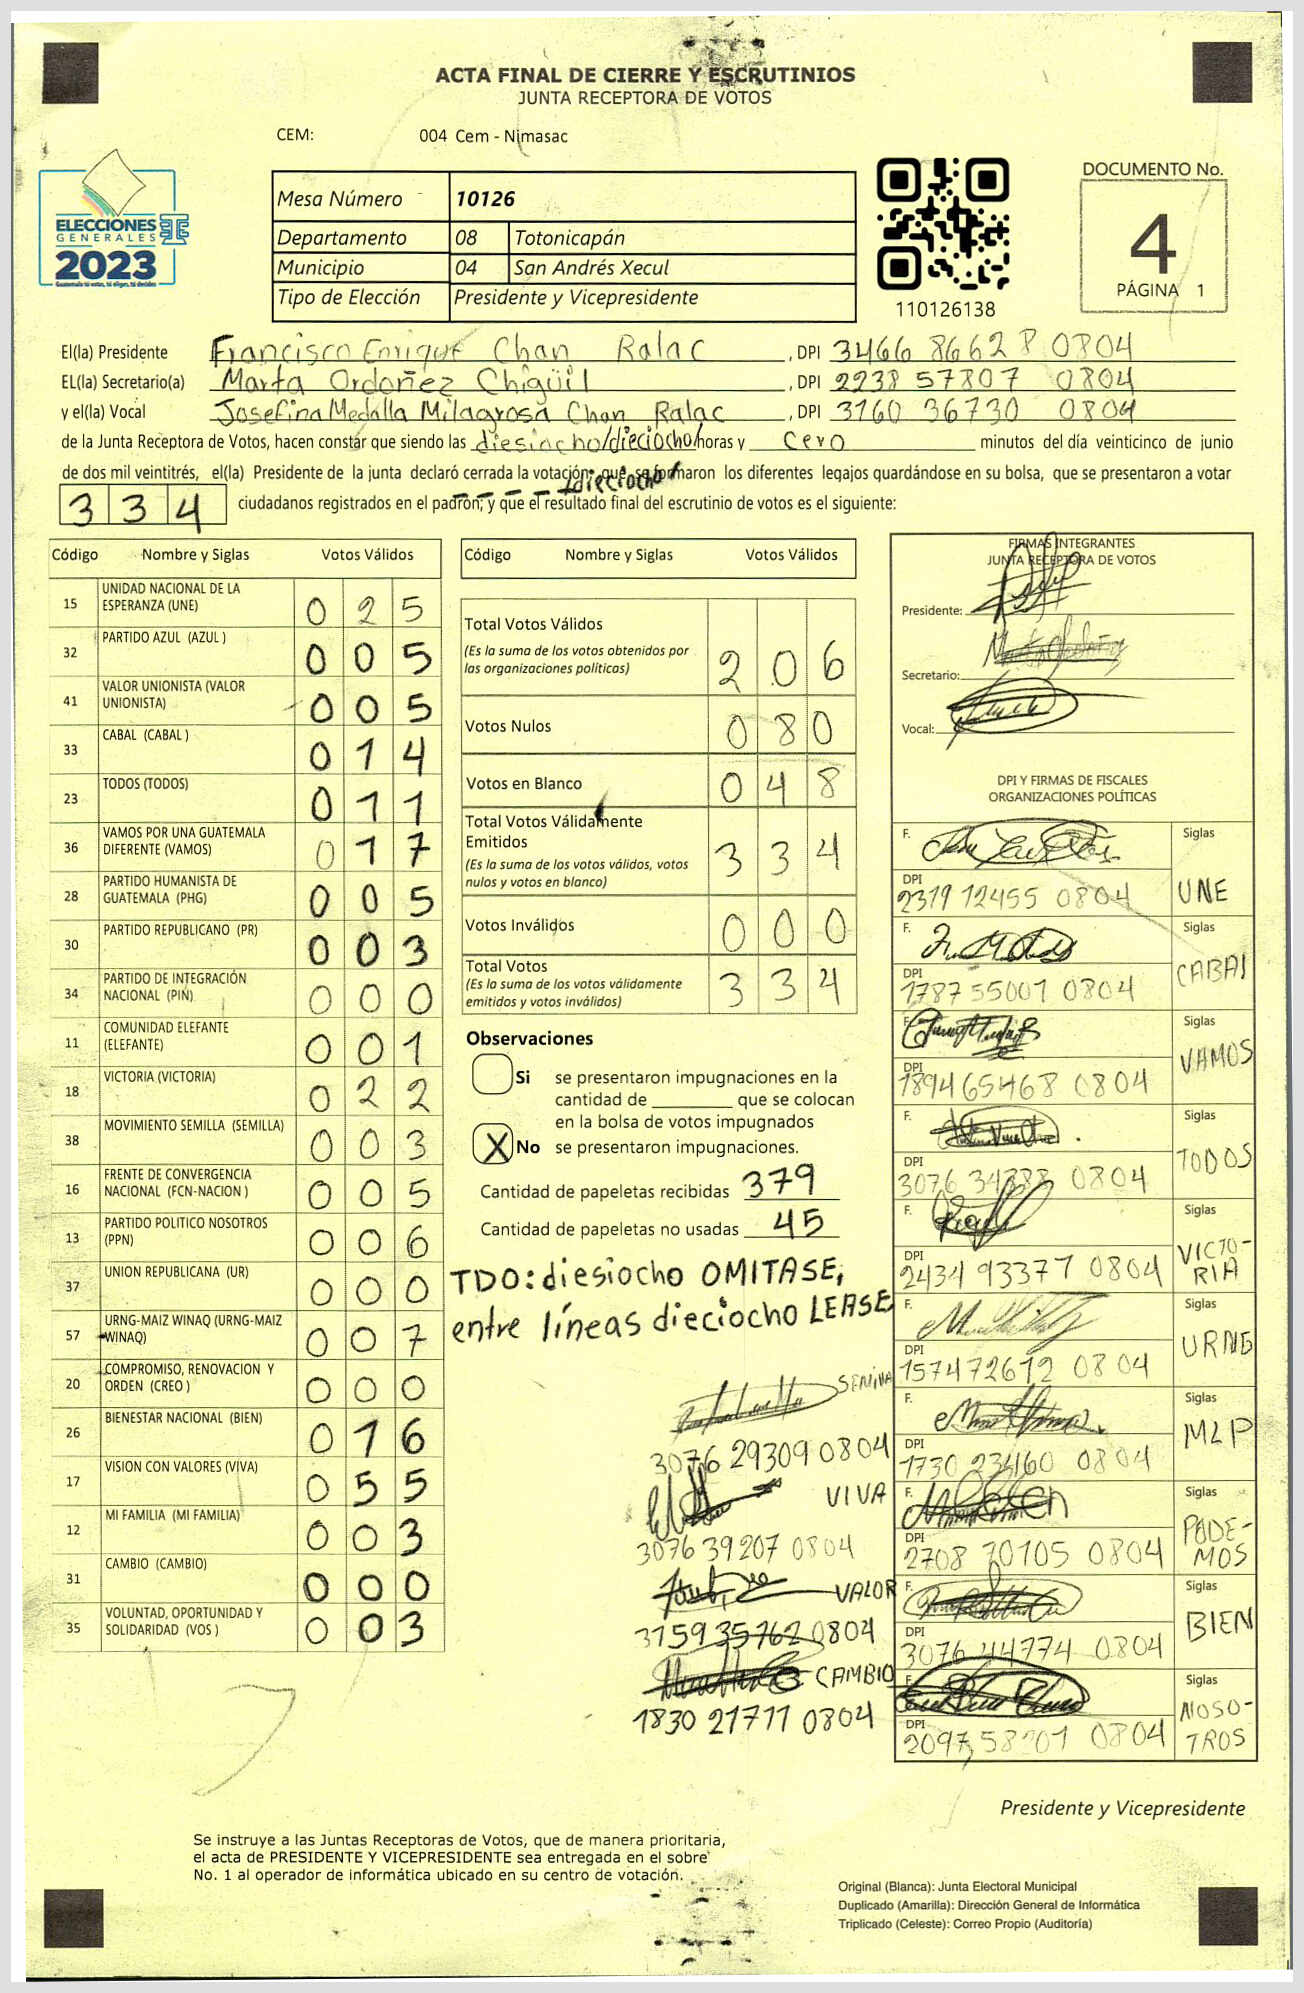 ACTA FINAL DE CIERRE Y ESCRUTINIOS
JUNTA RECEPTORA DE VOTOS
CEM: 004 Cem - Nimasac
ELECCIONES
GENERALES
2023
Guatemala tú votas, tú eliges, tú decides
Mesa Número 10126
Departamento 08 Totonicapán
Municipio 04 San Andrés Xecul
Tipo de Elección Presidente y Vicepresidente
110126138
DOCUMENTO No.
4
PÁGINA 1
El(la) Presidente Francisco Enrique Chan Ralac , DPI 3466 86628 0804
EL(la) Secretario(a) Marta Ordoñez Chigüil , DPI 2238 57807 0804
y el(la) Vocal Josefina Medalla Milagrosa Chan Ralac , DPI 3160 36730 0804
de la Junta Receptora de Votos, hacen constar que siendo las diesiocho/dieciocho/horas y cero minutos del día veinticinco de junio
de dos mil veintitrés, el(la) Presidente de la junta declaró cerrada la votación; que se formaron los diferentes legajos quardándose en su bolsa, que se presentaron a votar
/dieciocho/
334 ciudadanos registrados en el padrón; y que el resultado final del escrutinio de votos es el siguiente:
Código Nombre y Siglas Votos Válidos
15 UNIDAD NACIONAL DE LA ESPERANZA (UNE) 025
32 PARTIDO AZUL (AZUL ) 005
41 VALOR UNIONISTA (VALOR UNIONISTA) 005
33 CABAL (CABAL ) 014
23 TODOS (TODOS) 011
36 VAMOS POR UNA GUATEMALA DIFERENTE (VAMOS) 017
28 PARTIDO HUMANISTA DE GUATEMALA (PHG) 005
30 PARTIDO REPUBLICANO (PR) 003
34 PARTIDO DE INTEGRACIÓN NACIONAL (PIN) 000
11 COMUNIDAD ELEFANTE (ELEFANTE) 001
18 VICTORIA (VICTORIA) 022
38 MOVIMIENTO SEMILLA (SEMILLA) 003
16 FRENTE DE CONVERGENCIA NACIONAL (FCN-NACION ) 005
13 PARTIDO POLITICO NOSOTROS (PPN) 006
37 UNION REPUBLICANA (UR) 000
57 URNG-MAIZ WINAQ (URNG-MAIZ WINAQ) 007
20 COMPROMISO, RENOVACION Y ORDEN (CREO ) 000
26 BIENESTAR NACIONAL (BIEN) 016
17 VISION CON VALORES (VIVA) 055
12 MI FAMILIA (MI FAMILIA) 003
31 CAMBIO (CAMBIO) 000
35 VOLUNTAD, OPORTUNIDAD Y SOLIDARIDAD (VOS ) 003
Código Nombre y Siglas Votos Válidos
Total Votos Válidos 206
(Es la suma de los votos obtenidos por
las organizaciones politicas)
Votos Nulos 080
Votos en Blanco 048
Total Votos Válidamente
Emitidos 334
(Es la suma de los votos válidos, votos
nulos y votos en blanco)
Votos Inválidos 000
Total Votos 334
(Es la suma de los votos válidamente
emitidos y votos inválidos)
Observaciones
Si se presentaron impugnaciones en la
cantidad de ________ que se colocan
en la bolsa de votos impugnados
X No se presentaron impugnaciones.
Cantidad de papeletas recibidas 379
Cantidad de papeletas no usadas 45
TDO: diesiocho OMITASE,
entre líneas dieciocho LEASE
3076 29309 0804
VIVA
3076 39207 0804
VALOR
3159 35762 0804
CAMBIO
1830 21711 0804
FIRMAS INTEGRANTES
JUNTA RECEPTORA DE VOTOS
Presidente:
Secretario:
Vocal:
DPI Y FIRMAS DE FISCALES
ORGANIZACIONES POLÍTICAS
F. Siglas
DPI 2319 12455 0804 UNE
F. Siglas
DPI 1787 55001 0804 CABAl
F. Siglas
DPI 1894 65468 0804 VAMOS
F. Siglas
DPI 0804 TODOS
F. Siglas
DPI 2434 93377 0804 VICTO-
RIA
F. Siglas
DPI 1574 72612 0804 URNG
F. Siglas
DPI 1730 23460 0804 MLP
F. Siglas
DPI 2708 70105 0804 PODE-
MOS
F. Siglas
DPI 3076 44774 0804 BIEN
F. Siglas
DPI 2097 0804 NOSO-
TROS
Presidente y Vicepresidente
Se instruye a las Juntas Receptoras de Votos, que de manera prioritaria,
el acta de PRESIDENTE Y VICEPRESIDENTE sea entregada en el sobre
No. 1 al operador de informática ubicado en su centro de votación.
Original (Blanca): Junta Electoral Municipal
Duplicado (Amarilla): Dirección General de Informática
Triplicado (Celeste): Correo Propio (Auditoría)